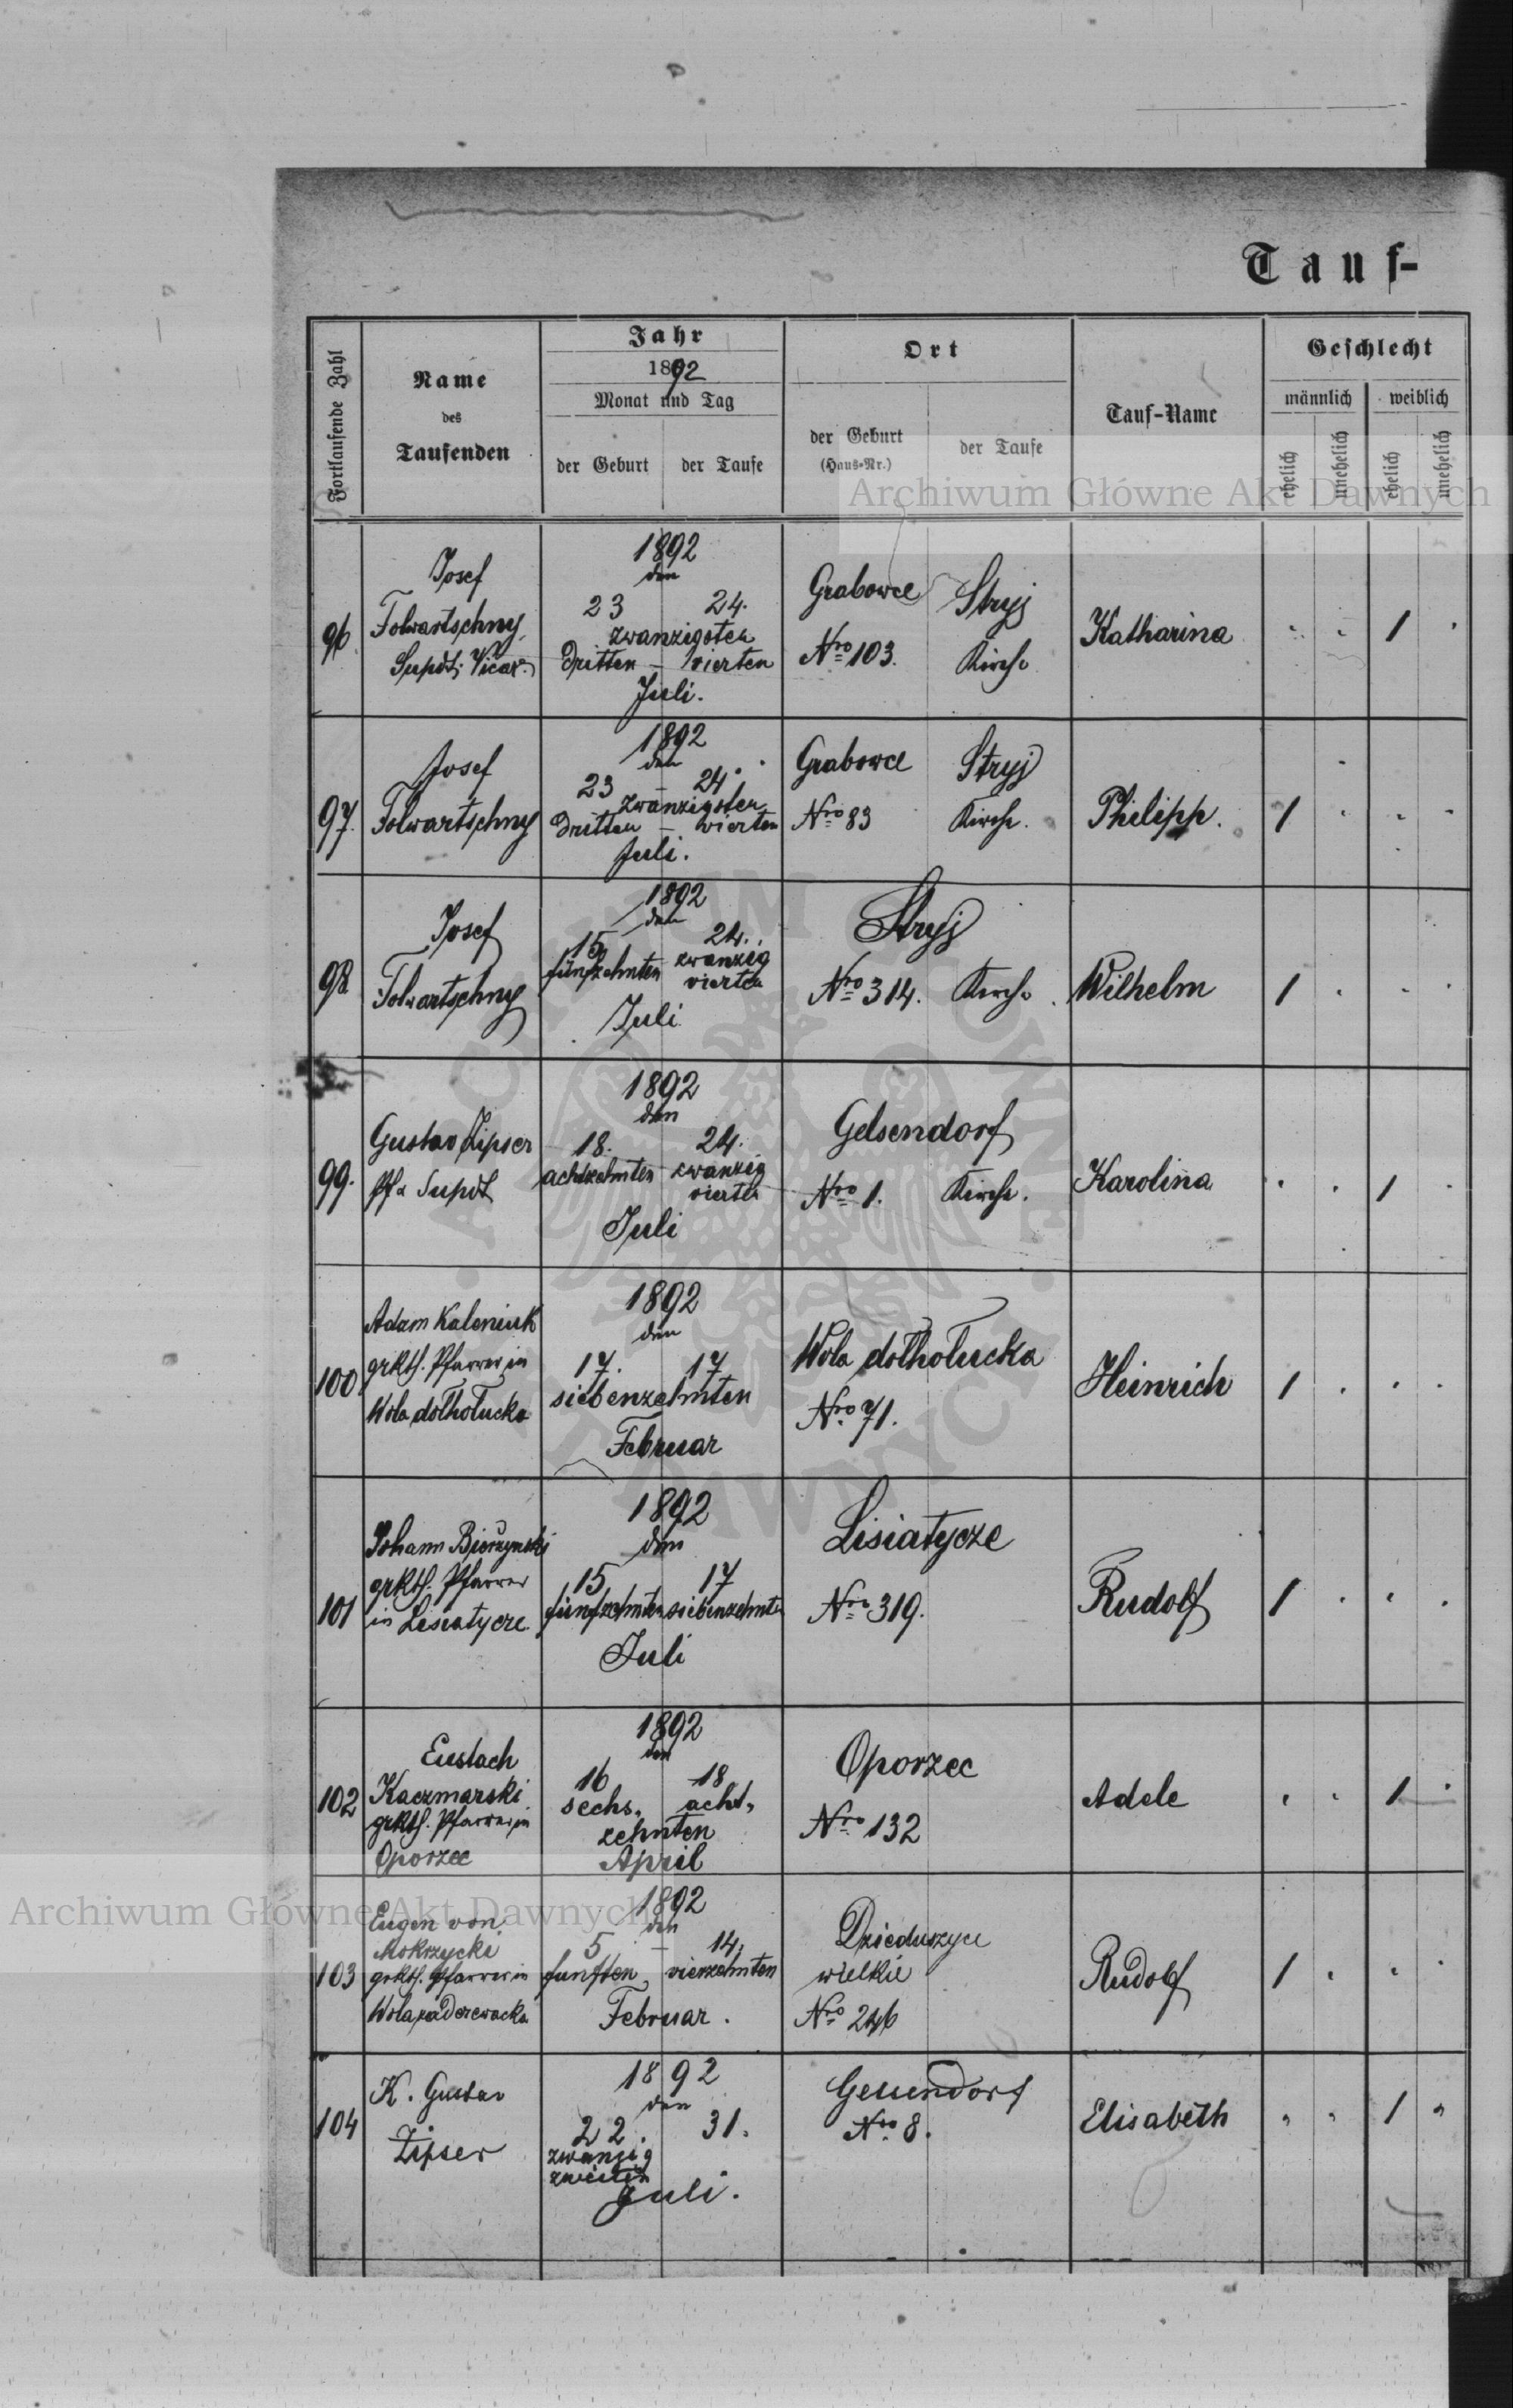 Tauf-
Fortlaufende Zahl
Name
des
Taufenden
Jahr
1892
Monat und Tag
der Geburt
der Taufe
Ort
der Geburt
(Haus-Nr.)
der Taufe
Tauf-Name
Geschlecht
männlich
weiblich
ehelich
unehelich
ehelich
unehelich
Archiwum Główne Akt Dawnych
96
Josef
Folwartschny,
Supdt. Vicar.
1892
den
23 24.
zwanzigsten
dritten – vierten
Juli.
Grabowce
Nro 103.
Stryj
Kirche
Katharina
1
97.
Josef
Folwartschny
1892
den
23 – 24.
zwanzigsten
dritten – vierten
Juli.
Grabowce
Nro 83
Stryj
Kirche.
Philipp.
1
98
Josef
Folwartschny
1892
den
15 24.
fünfzehnten zwanzig
vierten
Juli
Stryj
Nro 314. Kirche
Wilhelm
1
99.
Gustav Zipser
Pf. & Supdt
1892
den
18. 24.
achtzehnten zwanzig
vierten
Juli
Gelsendorf
Nro 1. Kirche.
Karolina
1
100
Adam Kaleniuk
grkth. Pfarrer in
Wola dołhołucka
1892
den
17. 17
siebenzehnten
Februar
Wola dołhołucka
Nro 71.
Heinrich
1
101
Johann
grkth. Pfarrer
in Lisiatycze
1892
den
15 17
fünfzehnten siebenzehnten
Juli
Lisiatycze
Nro 319.
Rudolf
1
102
Eustach
Kaczmarski
grkth. Pfarrer in
Oporzec
1892
den
16 18
sechs, acht,
zehnten
April
Oporzec
Nro 132
Adele
1
103
Eugen von
Mokrzycki
grkth. Pfarrer in
Wola zaderewacka
1892
den
5 – 14.
funften, vierzehnten
Februar.
Dzieduszyce
wielkie
Nro 246
Rudolf
1
Archiwum Główne Akt Dawnych
104
K. Gustav
Zipser
1892
den
22. 31.
zwanzig
zweiten
Juli.
Gelsendorf
Nro 8.
Elisabeth
1